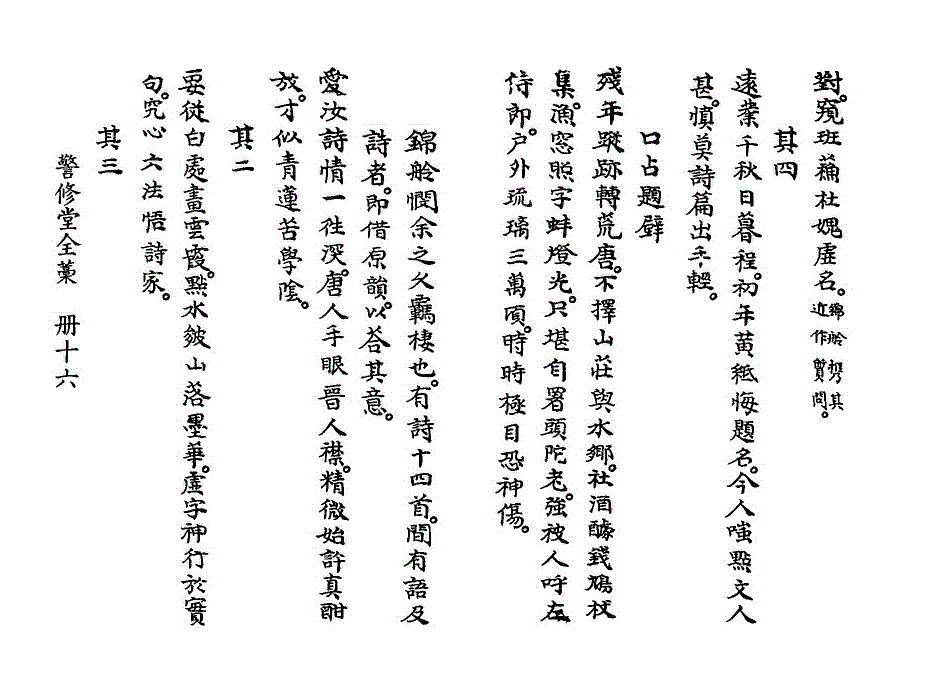 對。窺班蘇社媿虛名。錦舲攜其近作質問。
其四
遠業千秋日暮程。初年黃紙悔題名。今人嗤點文人
甚。慎莫詩篇出手輕。
口占題壁
殘年蹤跡轉荒唐。不擇山莊與水鄉。社酒醵錢鳩杖
集。漁窓照字蚌燈光。只堪自署頭陀老。強被人呼左
侍郎。戶外琉璃三萬頃。時時極目恐神傷。
錦舲憫余之久羈棲也。有詩十四首。間有語及
詩者。即借原韻。以答其意。
愛汝詩情一往深。唐人手眼晉人襟。精微始許真酣
放。才似青蓮苦學陰。
其二
要從白處畫雲霞。點水皴山落墨華。虛字神行於實
句。究心六法悟詩家。
其三
警修堂全藁　冊十六